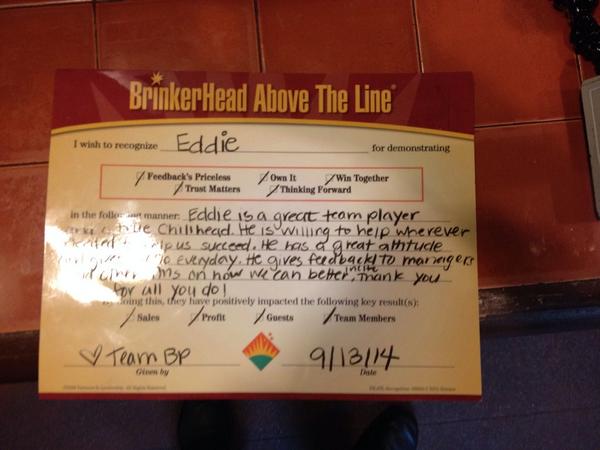 BrinkerHead Above The Line
I wish to recognize Eddie for demonstrating
Feedback's Priceless Own It Win Together
Trust Matters Thinking Forward
in the following manner: Eddie is a great team player
Chilihead. He is willing to help wherever
needed to help us succeed. He has a great attitude
and gives everyday. He gives feedback to managers
and other TMs on how we can better incite. Thank you
for all you do!
By doing this, they have positively impacted the following key result(s):
Sales Profit Guests Team Members
♡ Team BP 9/13/14
Given by Date